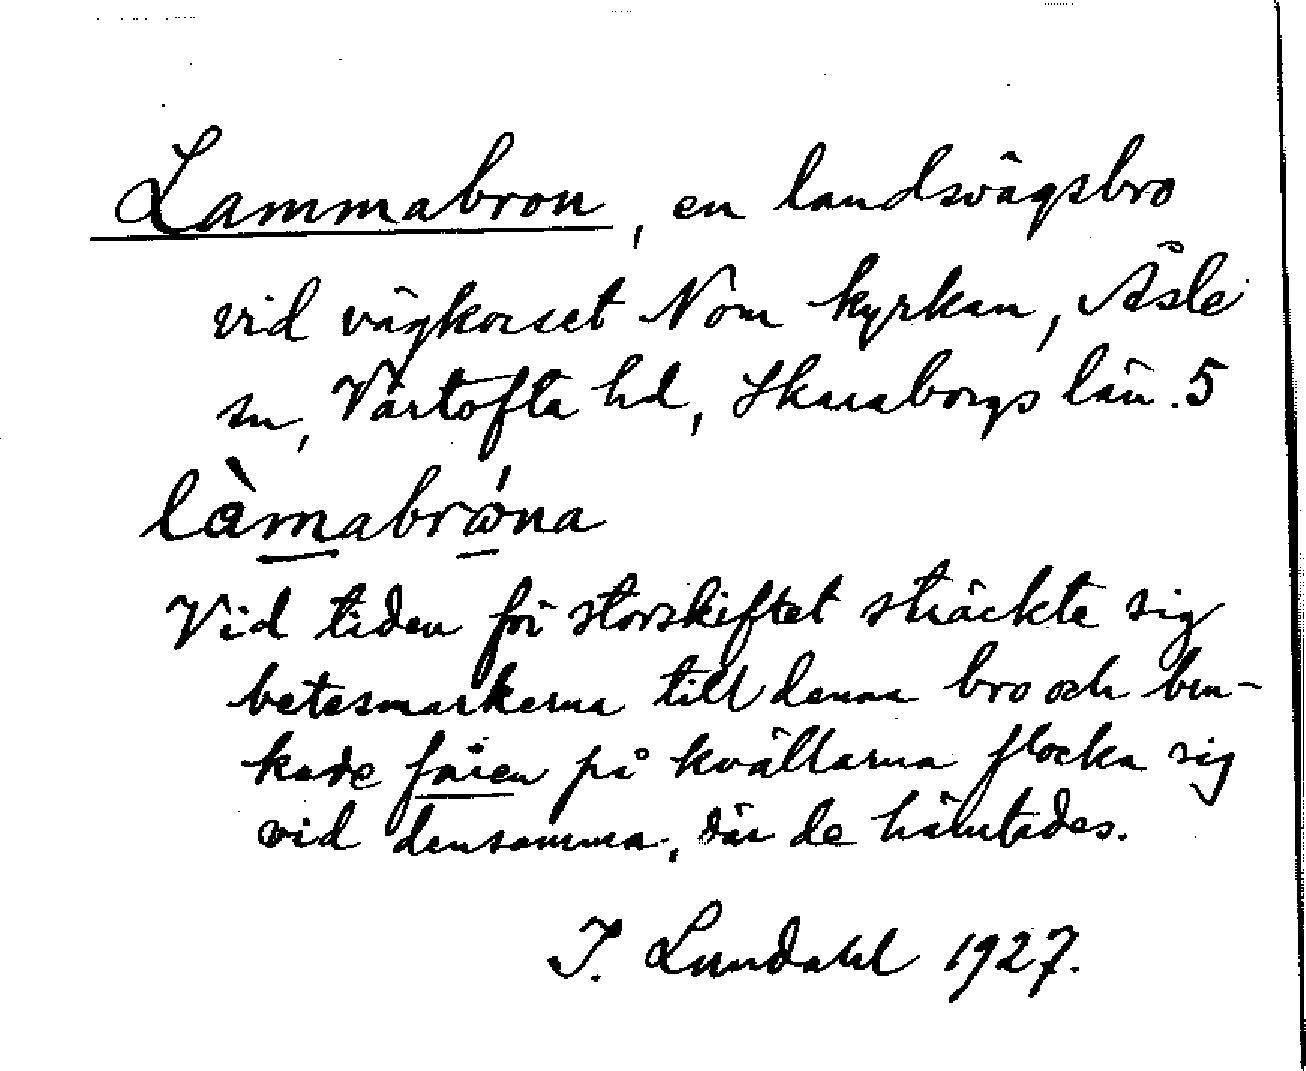 Lammabron, en landsvägsbro
vid vägkorset Nom kyrkan, Åsle
sn, Vartofta hd, Skaraborgs län. 5
làmabrǿna
Vid tiden för storskiftet sträckte sig
betesmarkerna till denna bro och bru-
kade fåren på kvällarna flocka sig
vid densamma, där de hämtades.
I. Lundahl 1927.